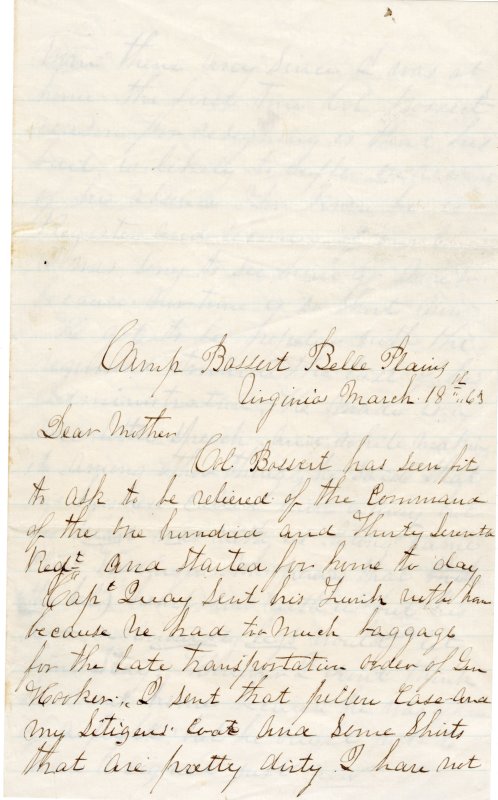 Camp Bossert Belle Plains
Virginia March 18th, 63
Dear Mother
Col Bossert has seen fit
to ask to be relieved of the Command
of the one hundred and Thirty Seventh
Regt and started for home to day
Capt Quay sent his Trunk with him
because he had too much baggage
for the late transportation order of Gen
Hooker. I sent that pillow Case and
my Sitizens Coat and Some Shirts
that are pretty dirty I have not